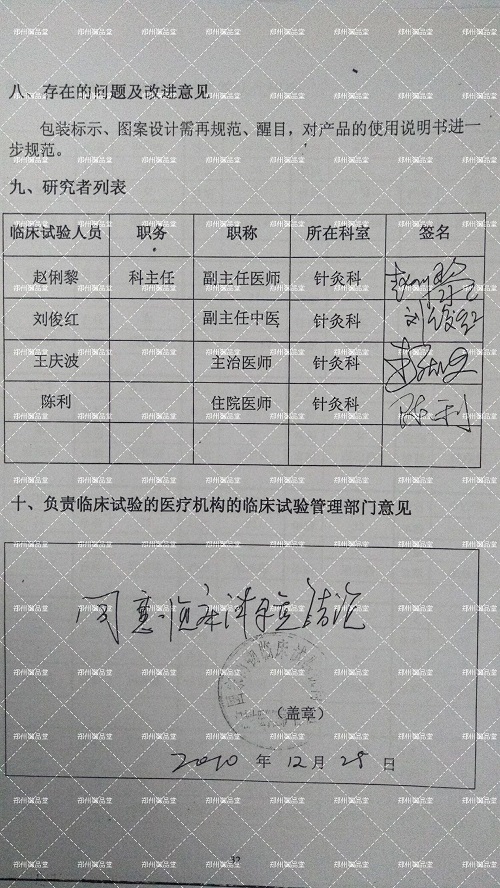 八、存在的问题及改进意见
包装标示、图案设计需再规范、醒目，对产品的使用说明书进一
步规范。
九、研究者列表
临床试验人员 职务 职称 所在科室 签名
赵俐黎 科主任 副主任医师 针灸科
刘俊红 副主任中医 针灸科 刘俊红
王庆波 主治医师 针灸科
陈利 住院医师 针灸科 陈利
十、负责临床试验的医疗机构的临床试验管理部门意见
同意临床试验结论
（盖章）
2010 年 12 月 28 日